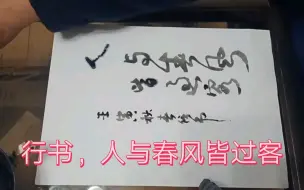 人
与春风
皆过客
壬寅秋
行书，人与春风皆过客